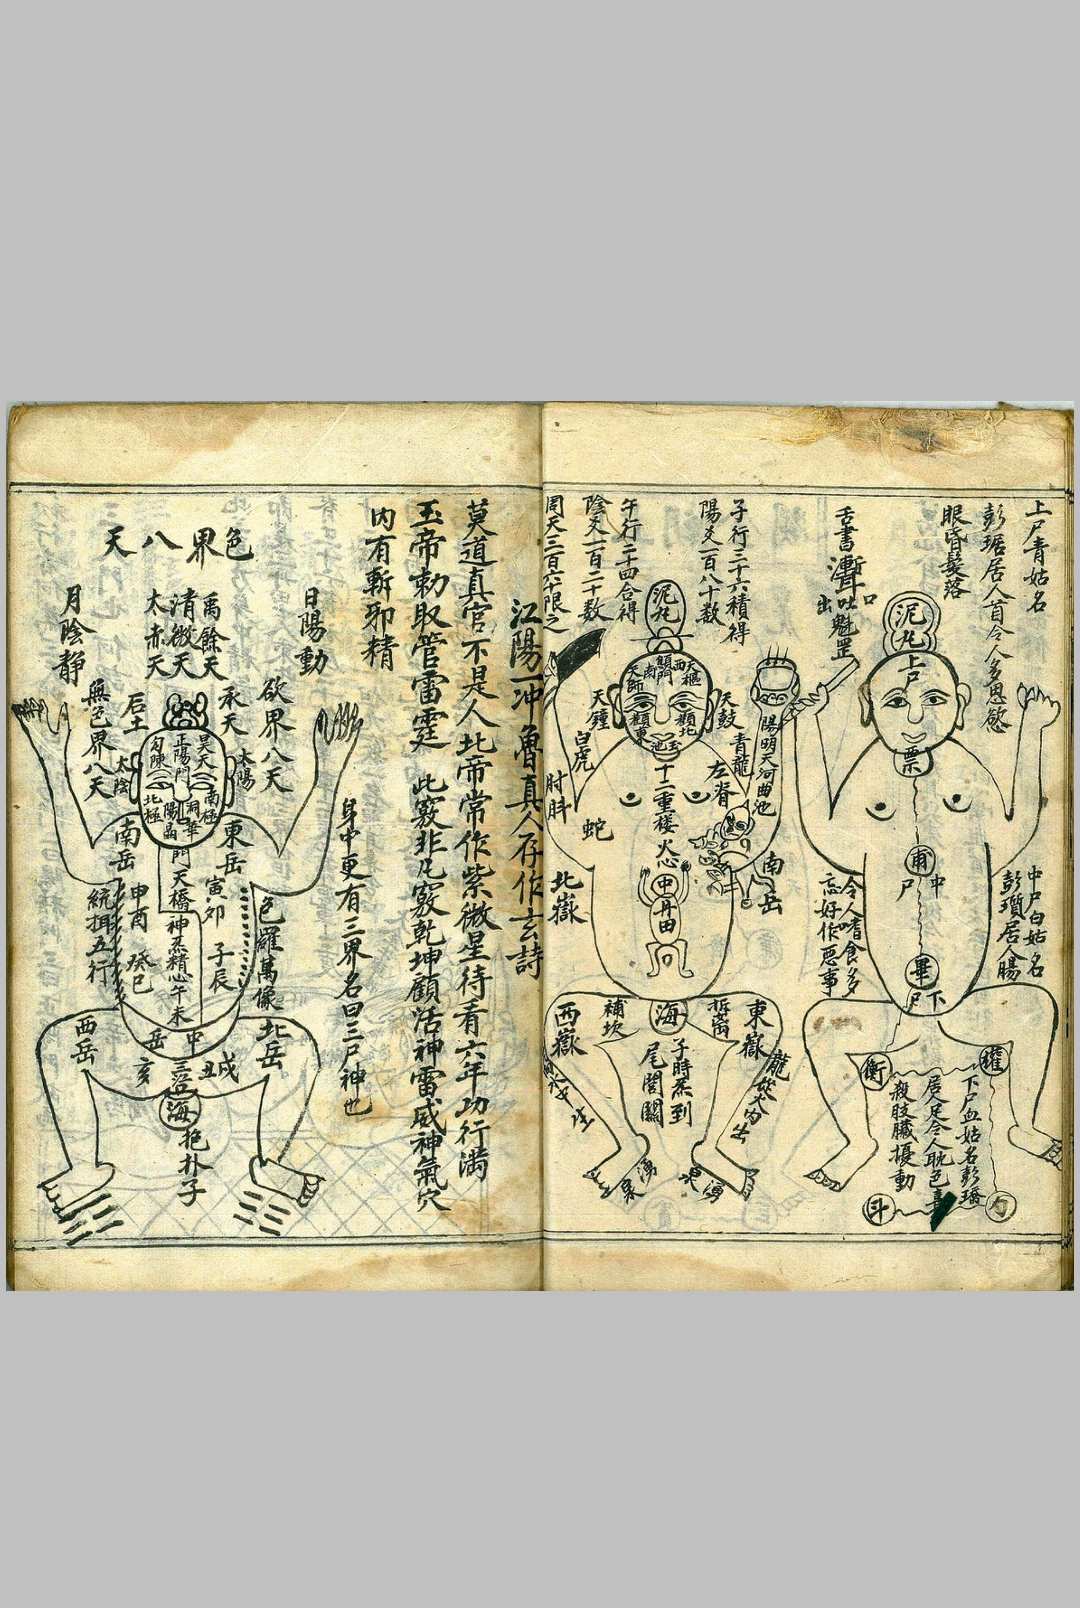 上尸青姑名
彭琚居人首令人多思慾
眼昏髮落
舌書
口吐魁罡
出
泥丸
上尸
票
甫
中尸
畢
下尸
中尸白姑名
彭瓆居人腸
令人嗜食多
忘好作惡事
權
衡
下尸血姑名彭瑶
居人足令人耽色喜
殺肢臟擾動
斗
子行三十六積得
陽爻一百八十數
午行二十四合得
陰爻一百二十數
周天三百六十限之
泥丸
天樞
西
顖門
南
天師
北
東
玉池
天鼓
天鐘
陽明天河曲池
青龍
白虎
左脊
蛇
十二重楼
火心
中丹田
南岳
北嶽
東嶽
西嶽
補坎
海
子時炁到
尾閭關
龍從火內出
湧泉
湧泉
江陽一冲魯真人存作玄詩
莫道真官不是人北帝常作紫微星待看六年功行满
玉帝勅取管雷霆 此竅非凡竅乾坤顧活神雷威神氣穴
内有斬邪精
身中更有三界名曰三尸神也
日陽動
色界八天
欲界八天
禹餘天
清微天
太赤天
月陰静
無色界八天
承天
后土
太陽
太陰
昊天
正陽門
勾陳
南極
北極
洞華
東岳
南岳
寅卯
子辰
申酉
癸巳
統揖五行
門天橋神炁精心午未
色羅萬像
北岳
西岳
中
岳
戌
丑
亥
海
抱朴子